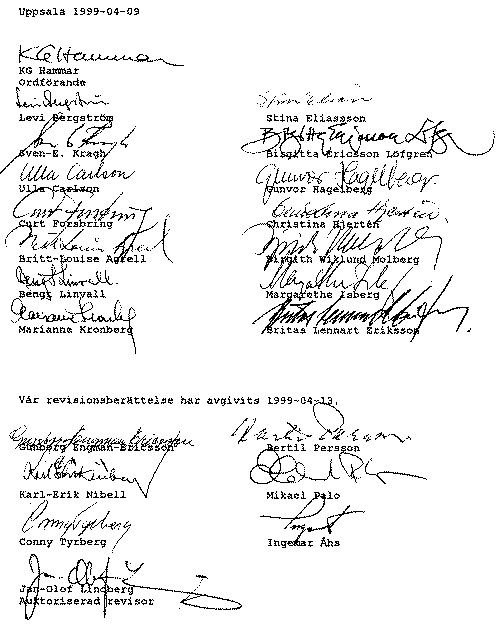 Uppsala 1999-04-09
KG Hammar
KG Hammar
Ordförande
Levi Bergström
Stina Eliasson
Stina Eliasson
Sven-E. Kragh
Birgitta Ericsson Löfgren
Ulla Carlson
Gunvor Hagelberg
Ulla Carlson
Gunvor Hagelberg
Curt Forsbring
Christina Hjertén
Curt Forsbring
Christina Hjertén
Britt-Louise Agrell
Birgith Wiklund Molberg
Bengt Linvall
Margarethe Isberg
Bengt Linvall
Margarethe Isberg
Marianne Kronberg
Britas Lennart Eriksson
Vår revisionsberättelse har avgivits 1999-04-13.
Gunborg Engman-Ericsson
Bertil Persson
Karl-Erik Nibell
Mikael Palo
Conny Tyrberg
Conny Tyrberg
Ingemar Åhs
Jan-Olof Lindberg
Auktoriserad revisor